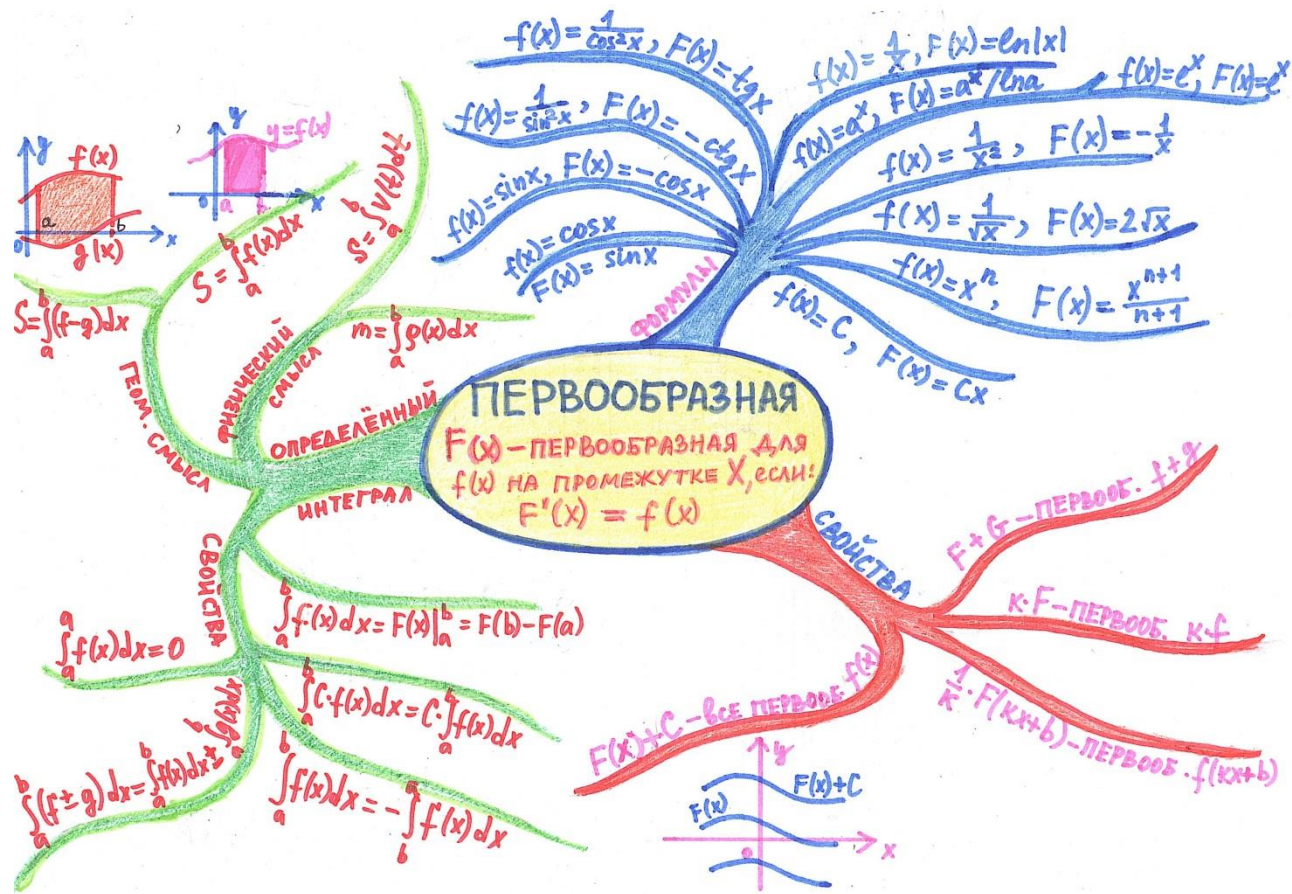 ПЕРВООБРАЗНАЯ
F(x) – ПЕРВООБРАЗНАЯ ДЛЯ
f(x) НА ПРОМЕЖУТКЕ X, ЕСЛИ:
F'(x) = f(x)
ФОРМУЛЫ
f(x) = 1/cos²x, F(x) = tgx
f(x) = 1/sin²x, F(x) = -ctgx
f(x) = sinx, F(x) = -cosx
f(x) = cosx
F(x) = sinx
f(x) = 1/x, F(x) = ln|x|
f(x) = aˣ, F(x) = aˣ/lna
f(x) = eˣ, F(x) = eˣ
f(x) = 1/x², F(x) = -1/x
f(x) = 1/√x, F(x) = 2√x
f(x) = xⁿ, F(x) = xⁿ⁺¹/n+1
f(x) = C, F(x) = Cx
СВОЙСТВА
F+G – ПЕРВООБ. f+g
к·F – ПЕРВООБ. к·f
1/к · F(кx+b) – ПЕРВООБ. f(кx+b)
F(x)+C – ВСЕ ПЕРВООБ. f(x)
y
F(x)+C
F(x)
0
x
ОПРЕДЕЛЁННЫЙ
ИНТЕГРАЛ
ФИЗИЧЕСКИЙ
СМЫСЛ
S = ∫ₐᵇ V(t)dt
m = ∫ₐᵇ ρ(x)dx
ГЕОМ. СМЫСЛ
S = ∫ₐᵇ f(x)dx
S = ∫ₐᵇ (f-g)dx
y
y=f(x)
0
a
b
x
y
f(x)
0
a
b
x
g(x)
СВОЙСТВА
∫ₐᵇ f(x)dx = F(x)|ₐᵇ = F(b) – F(a)
∫ₐᵃ f(x)dx = 0
∫ₐᵇ C·f(x)dx = C·∫ₐᵇ f(x)dx
∫ₐᵇ (f ± g)dx = ∫ₐᵇ f(x)dx ± ∫ₐᵇ g(x)dx
∫ₐᵇ f(x)dx = - ∫ᵦᵃ f(x)dx